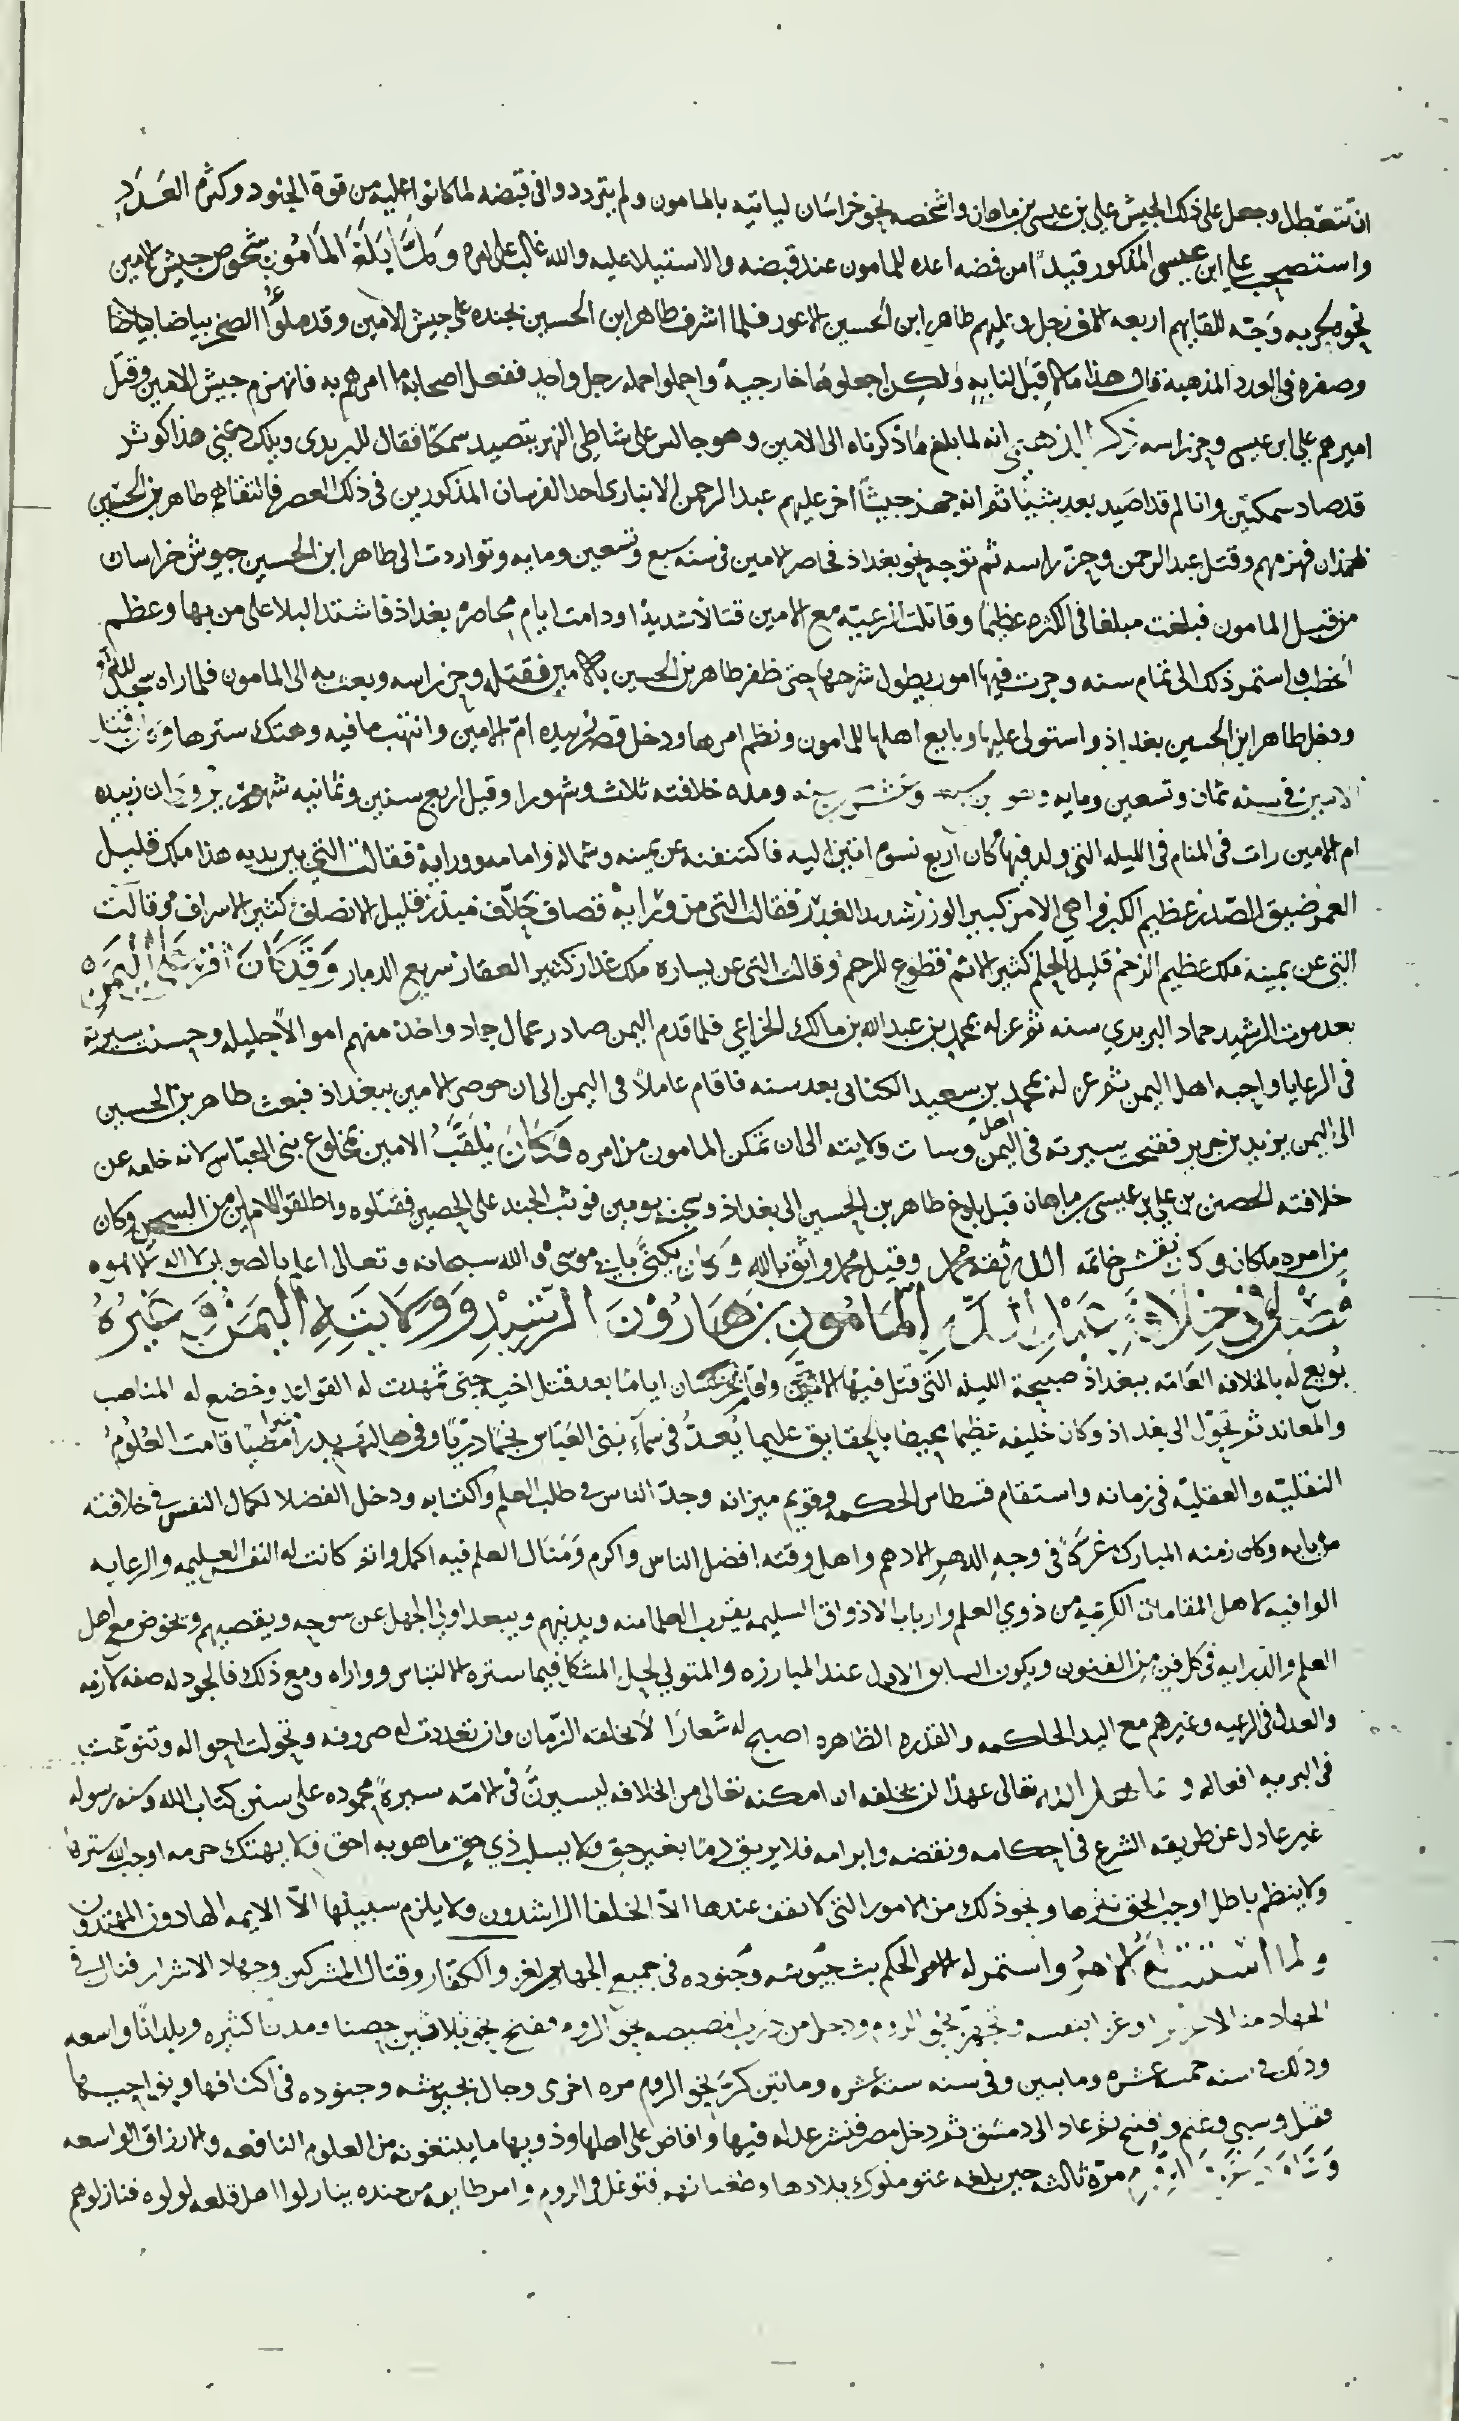 ان تتعطل وجعل على ذلك الجيش علي بن عيسى بن ماهان واشخصه نحو خراسان لياتيه بالمامون ولم يترددوا في قبضه لما كانوا عليه من قوة الجنود وكثره العدد
واستصحب علي ابن عيسى المذكور قيدًا من فضه اعده للمامون عند قبضه والاستيلا عليه والله غالب على امره ولما بلغ المامون شخوص جيش الامين
نحوه لحربه وجّه للقايهم اربعه الاف رجل وعليهم طاهر ابن الحسين الاعور فلما اشرف طاهر ابن الحسين بجنده على جيش الامين وقد ملؤا الصحر بياضا
وصفره في العدد المذهبة قال هذا ما لا قبل لنا به ولكن اجعلوها خارجية واحملوا حملة رجل واحد ففعل اصحابه ما امرهم به فانهزم جيش الامين وقتل
اميرهم علي ابن عيسى وجز راسه ذكر الذهبي انه لما بلغ ما ذكرناه الى الامين وهو جالس على شاطي النهر يتصيد سمكًا فقال للبريدي ويلك دعني هذا كوثر
قد صاد سمكتين وانا لم اصيد بعد شيئًا ثم انه جهز جيشًا اخر عليهم عبد الرحمن الانباري احد الفرسان المذكورين في ذلك العصر فالتقاهم طاهر بن الحسين
بهمذان فهزمهم وقتل عبد الرحمن وجز راسه ثم توجه نحو بغداذ فحاصر الامين في سنه سبع وتسعين ومايه وتواردت الى طاهر ابن الحسين جيوش خراسان
من قبل المامون فبلغت مبلغا في الكثره عظيمًا وقاتلت الرعيّه مع الامين قتالا شديدًا ودامت ايام محاصرة بغداذ فاشتد البلا على من بها وعظم
الخطب واستمر ذلك الى تمام سنه وجرت فيها امور يطول شرحها حتى ظفر طاهر بن الحسين بالامين فقتله وجز راسه وبعث به الى المامون فلما راه سجد لله
ودخل طاهر ابن الحسين بغداذ واستولى عليها وبايع اهلها للمامون ونظم امرها ودخل قصر زبيده ام الامين وانتهب ما فيه وهتك سترها وكان قتل
الامين في سنه ثمان وتسعين ومايه وهو ابن سبع وعشرين سنه ومده خلافته ثلاث وشهورا وقيل اربع سنين وثمانيه شهور يروى ان زبيده
ام الامين رات في المنام في الليله التي ولد فيها كان اربع نسوه اتين اليه فاكتنفنه عن يمينه وشماله وامامه وورايه فقالت التي بين يديه هذا ملك قليل
العمر ضيق الصدر عظيم الكبر واهي الامر كبير الوزر شديد الغدر فقالت التي من ورايه قصاف خلاف مبذر قليل الانصاف كثير الاسراف وقالت
التي عن يمينه ملك عظيم الزخم قليل الحلم كثير الاثم قطوع للرحم وقالت التي عن يساره ملك غدار كثير العثار سريع الدمار وقد كان اقر على اليمن
بعد موت الرشيد حماد البربري سنه ثم عزله بمحمد بن عبد الله بن مالك الخزاعي فلما قدم اليمن صادر عمال حماد واخذ منهم اموالا جليله وحسنت سيرته
في الرعايا واحبه اهل اليمن ثم عزله بمحمد بن سعيد الكناني بعد سنه فاقام عاملا في اليمن الى ان حوصر الامين ببغداذ فبعث طاهر بن الحسين
الى اليمن يزيد بن جرير فقبحت سيرته في اهل اليمن وسات ولايته الى ان تمكن المامون من امره وكان يلقب الامين بمخلوع بني العباس لانه خلعه عن
خلافته الحصين بن علي بن عيسى بن ماهان قبل بلوغ طاهر بن الحسين الى بغداذ وسجنه يومين فوثب الجند على الحصين فقتلوه واطلقوا الامين من السجن وكان
من امره ما كان وكان نقش خاتمه الله ثقه محمد وقيل محمد واثق بالله وكان يكنى بابي موسى والله سبحانه وتعالى اعلم بالصواب لا اله الا هو
فصل في خلافة عبد الله المامون بن هارون الرشيد وولايته اليمن وغيره
بويع له بالخلافه العامه ببغداذ صبيحة الليله التي قتل فيها الامين واقام بخراسان اياما بعد قتل اخيه حتى تمهدت له القواعد وخضع له المناصب
والمعاند ثم تحول الى بغداذ وكان خليفه عظيما محيطا بالحقايق عليما يُعدّ في سمآء بني العباس نجمًا دريًا وفي هالتهم بدرًا قامت العلوم
النقليه والعقليه في زمانه واستقام قسطاس الحكمه وقويم ميزانه وجدّ الناس في طلب العلم واكتسابه ودخل الفضلا لكمال النفس في خلافته
من بابه وكان زمنه المبارك غرةً في وجه الدهر الادهم واهل وقته افضل الناس واكرم ومنال العلم فيه اكمل واتم كانت له النفس العليمه والرعايه
الوافيه لاهل المقامات الكريمة من ذوي العلم وارباب الاذواق السليمه يقرب العلما منه ويدنيهم ويبعد اولي الجهل عن سوحه ويقصيهم ويخوض مع اهل
العلم والدرايه في كل فن من الفنون ويكون السابق الاول عند المبارزه والمتولي لحل المشكل فيما ستره الالتباس وواراه ومع ذلك فالجود له صفه لازمه
والعدل في الرعيه وغيرهم مع اليد الحاكمه والقدره الظاهره اصبح له شعارًا لا يخلقه الزمان وان تعددت له صروفه وتحولت احواله وتنوعت
في البريه افعاله وعاهد الله تعالى عهدًا لن يخلفه ان امكنه تعالى من الخلافه ليسيرنّ في الامه سيرةً محموده على سنن كتاب الله وسنه رسوله
غير عادل عن طريقه الشرع في احكامه ونقضه وابرامه فلا يريق دمًا بغير حق ولا يسلب ذي حق ما هو به احق ولا يهتك حرمه اوجب الله سترها
ولا ينظم باطل اوجب الحق نثرها ونحو ذلك من الامور التي لا يقف عندها الا الخلفا الراشدون ولا يلزم سبيلها الا الايمه الهادون المهتدون
ولما استتب له الامر واستمر له الحكم بث جيوشه وجنوده في جميع الجهات لغزو الكفار وقتال المشركين وجهاد الاشرار فنال في
الجهاد وغزا بنفسه وتجهز نحو الروم ودخل من درب المصيصه نحو الروم ففتح نحو ثلاثين حصنا ومدنا كثيره وبلدانًا واسعه
وذلك في سنه خمسه عشره ومايتين وفي سنه سته عشره ومايتين كرّ نحو الروم مره اخرى وجال بجيوشه وجنوده في اكنافها ونواحيها
فقتل وسبى وغنم وفتح ثم عاد الى دمشق ثم دخل مصر فنشر عدله فيها وافاض على اهلها وذويها ما يبتغونه من العلوم النافعه والارزاق الواسعه
مرّة ثالثه حين بلغه عتو ملوك بلادها وطغيانهم فتوغل في الروم وامر طايفه من جنده ينازلوا اهل قلعه لولوه فنازلوهم